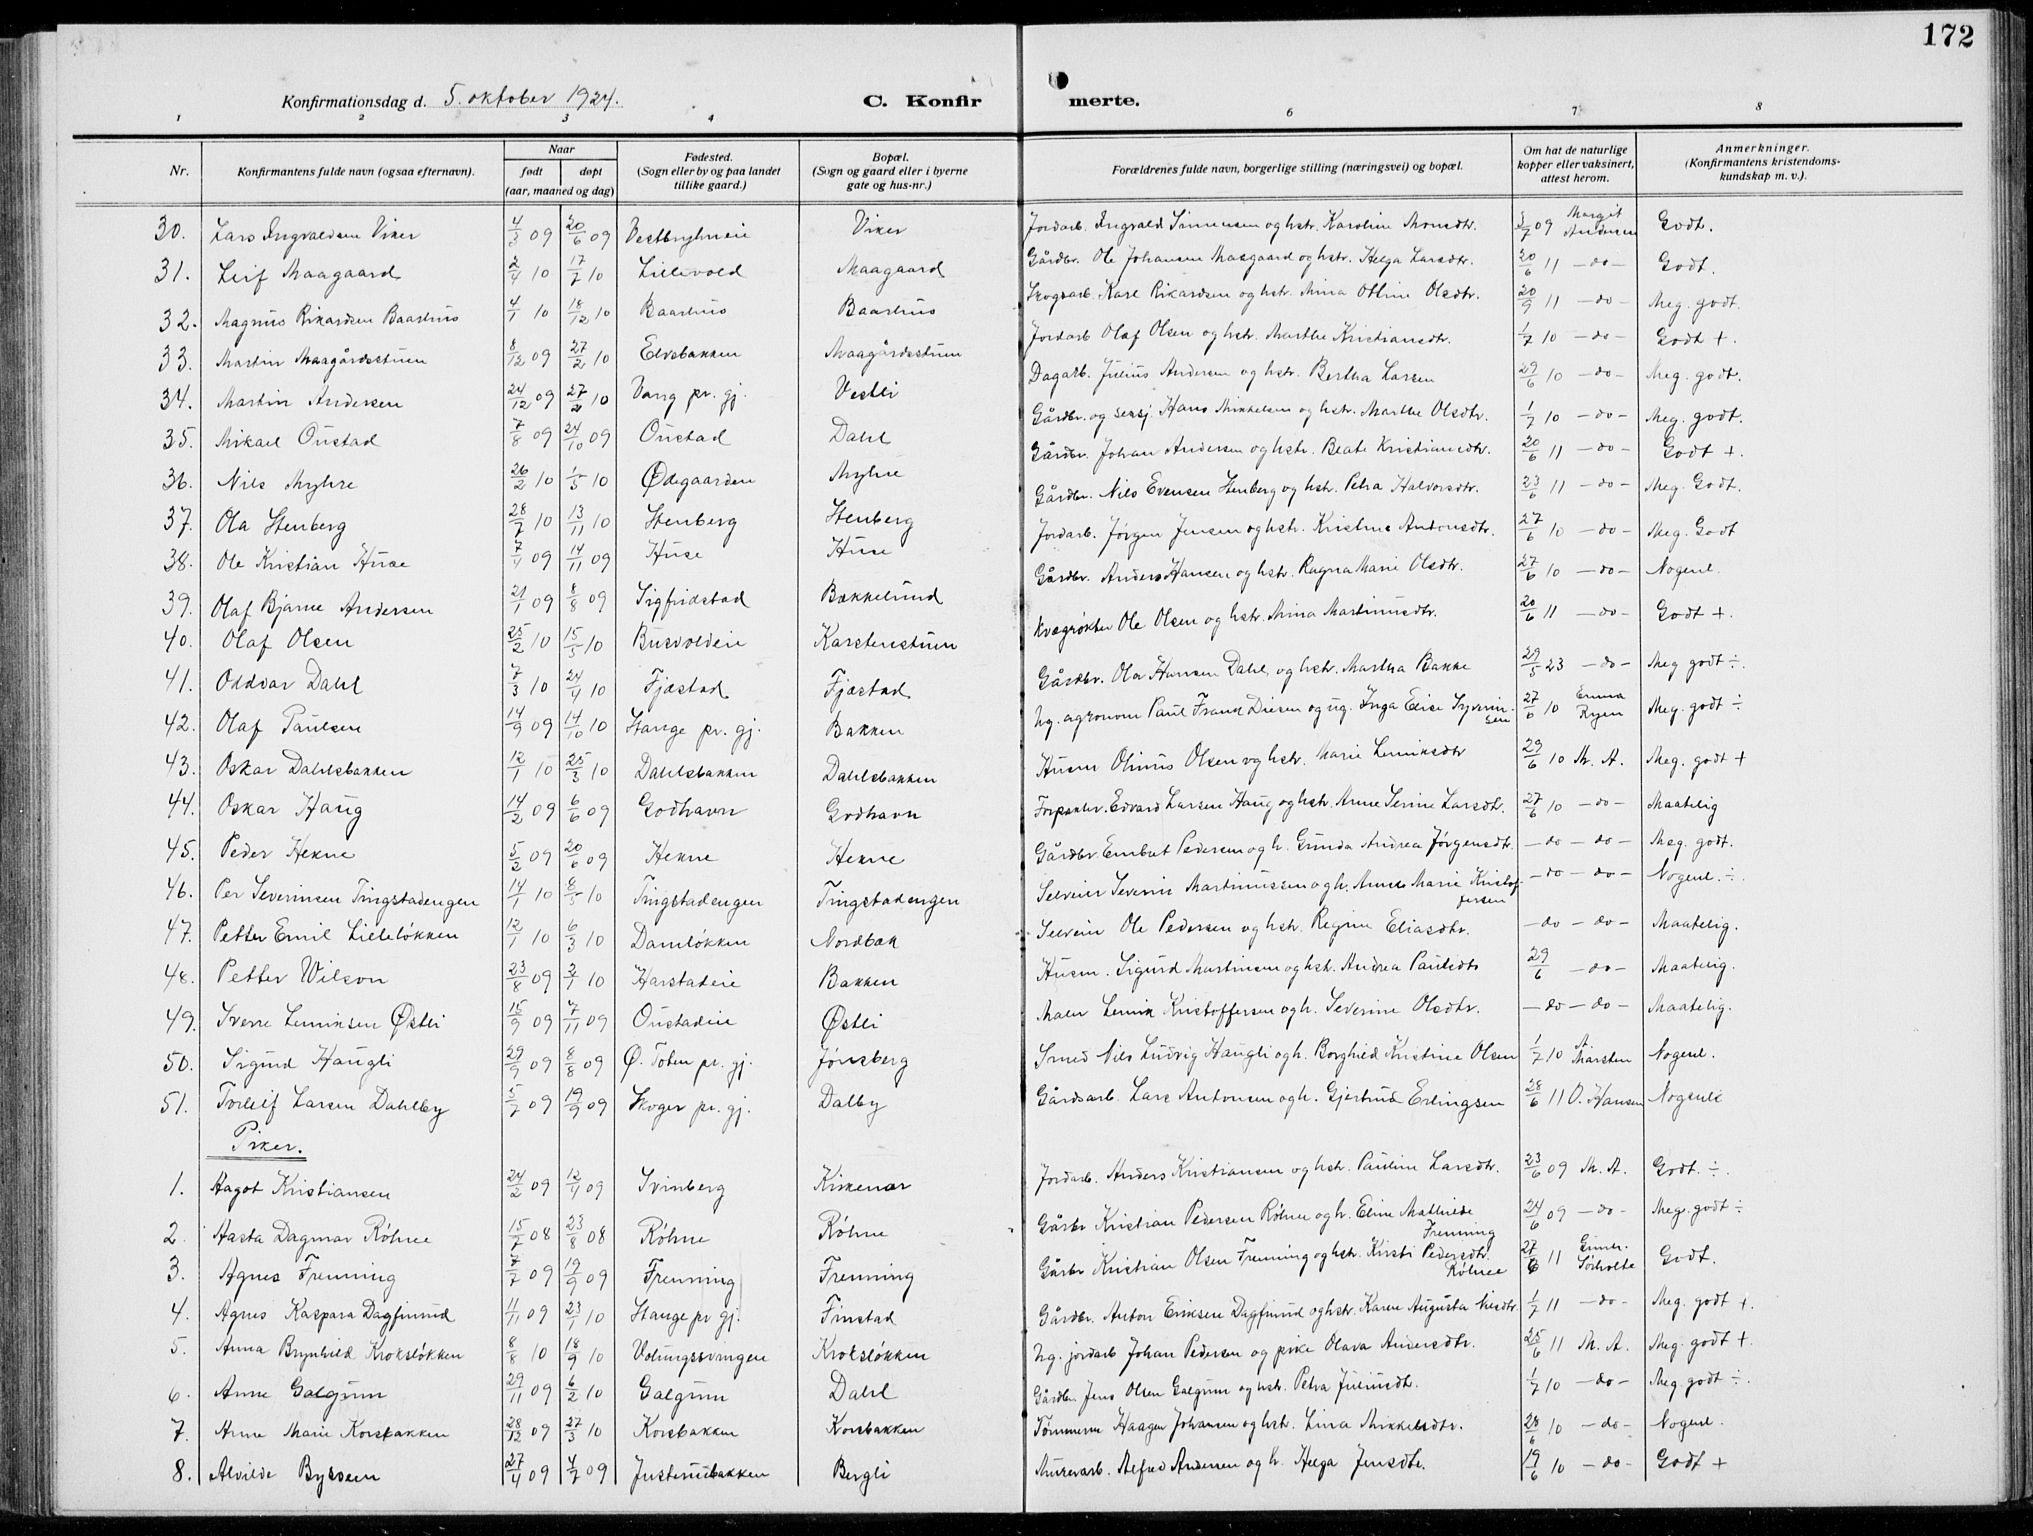 172
Konfirmationsdag d. 5. oktober 1924. C. Konfir merte.
1 2 3 4 6 7 8
Nr. Konfirmantens fulde navn (ogsaa efternavn). Naar født døpt (aar, maaned og dag) Fødested. (Sogn eller by og paa landet tillike gaard.) Bopæl. (Sogn og gaard eller i byerne gate og hus-nr.) Forældrenes fulde navn, borgerlige stilling (næringsvei) og bopæl. Om hat de naturlige kopper eller vaksinert, attest herom. Anmerkninger. (Konfirmantens kristendoms-kundskap m. v.).
30. Lars Ingvaldsen Viker 4/3 09 20/6 09 Viker Jordarb. Ingvald Simensen og hstr. Karoline Monsdtr. 09 Margit Andersen Godt.
31. Leif Maagaard 2/4 10 17/7 10 Lillevold Maagaard Gårdbr. Ole Johansen Maagaard og hstr. Helga Larsdtr. 20/6 11 - do - Godt.
32. Magnus Rikardsen Baashus 4/1 10 18/12 10 Baashus Baashus Skogsarb. Karl Rikardsen og hstr. Mina Otline Olsdtr. 20/9 11 - do - Meg. godt.
33. Martin Maagårdsstuen 8/12 09 27/2 10 Elvsbakken Maagårdsstuen Jordarb. Olaf Olsen og hstr. Marthe Kristiansdtr. 1/7 10 - do - Godt +.
34. Martin Andersen 24/12 09 27/2 10 Vang pr. gj. Vestli Dagarb. Julius Andersen og hstr. Bertha Larsen 29/6 10 - do - Meg. godt.
35. Mikael Oustad 7/8 09 24/10 09 Oustad Dahl Gårdbr. og Hans Mikkelsen og hstr. Marthe Olsdtr. 1/7 10 - do - Meg. godt.
36. Nils Myhre 26/2 10 1/5 10 Ødegaarden Myhre Gårdbr. Johan Andersen og hstr. Beate Kristiansdtr. 20/6 11 - do - Godt +.
37. Ola Stenberg 28/7 10 13/11 10 Stenberg Stenberg Gårdbr. Nils Evensen Stenberg og hstr. Petra Halvorsdtr. 23/6 11 - do - Meg. Godt.
38. Ole Kristian Huse 7/4 09 14/11 09 Huse Huse Jordarb. Jørgen Jensen og hstr. Kristine Antonsdtr. 27/6 10 - do - Meg. Godt
39. Olaf Bjarne Andersen 21/1 09 8/8 09 Sigfridstad Bækkelund Gårdbr. Anders Hansen og hstr. Ragna Marie Olsdtr. 27/6 10 - do - Nogenl.
40. Olaf Olsen 25/2 10 15/5 10 Busvoldeie Karstenstuen Kvægrøkter Ole Olsen og hstr. Mina Martinusdtr. 20/6 11 - do - Godt +
41. Oddvar Dahl 7/3 10 24/4 10 Fjæstad Fjæstad Gårdbr. Ola Hansen Dahl og hstr. Martha Bakke 29/5 23 - do - Meg godt ÷.
42. Olaf Paulsen 14/9 09 14/10 10 Stange pr. gj. Bakken Ug. agronom Paul Frank Diesen og ug. Inga Elise Syverinsen 27/6 10 Emma Ryen Meg. godt ÷
43. Oskar Dahlsbakken 12/1 10 25/3 10 Dahlsbakken Dahlsbakken Husm Olinus Olsen og hstr. Marie Lemiksdtr 29/6 10 M. A. Meg. godt +
44. Oskar Haug 14/2 09 6/6 09 Godhavn Godhavn Forpakter. Edvard Larsen Haug og hstr. Anne Serine Larsdtr. 27/6 10 - do - Maatelig
45. Peder Hekne 5/2 09 20/6 09 Hekne Hekne Gårdbr. Embret Pedersen og h. Gunda Andrea Jørgensdtr. - do - do - Meg. godt.
46. Per Severinsen Tingstadengen 14/1 10 8/5 10 Tingstadengen Tingstadengen Selveier Severin Martinussen og h. Anna Marie Kristoffersen - do - do - Nogenl. ÷.
47. Petter Emil Lilleløkken 12/1 10 6/3 10 Damløkken Nordbæk Selveier Ole Pedersen og hstr. Regine Eliasdtr. - do - do - Maatelig.
48. Petter Wilson 23/8 09 10 Harstadeie Bakken Husm. Sigurd Martinsen og hstr. Andrea 29/6 - do - Maatelig.
49. Sverre Leminksen Østli 15/9 09 7/11 09 Oustadeie Østli Maler Kristoffersen og h. Severine Olsdtr. - do - do - Maatelig.
50. Sigurd Haugli 09 8/8 09 Ø. Toten pr. gj. Jønsberg Smed Nils Ludvig Haugli og h. Borghild Kristine Olsen 1/7 10 A Marsten Nogenl.
51. Torleif Larsen Dahlby 5/7 09 19/9 09 Skoger pr. gj. Dalby Gårdsarb. Lars Antonsen og h. Gjertrud Erlingsen 28/6 11 O. Hansen Nogenlt
Piker.
1. Aagot Kristiansen 24/2 09 12/4 09 Svinberg Kirkenær Jordarb. Anders Kristiansen og hstr. Pauline Larsdtr. 23/6 09 M. A. Godt. ÷.
2. Aasta Dagmar Røhne 15/7 08 23/8 08 Røhne Røhne Gårbr Kristian Pedersen Røhne og h. Eline Mathilde Frenning 24/6 09 - do - Meg. godt ÷
3. Agnes Frenning 7/7 09 19/9 09 Frenning Frenning Gårbr Kristian Olsen Frenning og hstr. Kirsti Pedersdtr. Røhne 27/6 11 Sørholte Godt.
4. Agnes Kaspara Dagfinrud 11/11 09 23/1 10 Stange pr gj. Finstad Gårdbr. Anton Eriksen Dagfinrud og hstr. Karen Augusta Nilsdtr. 1/7 11 - do - Meg. godt +.
5. Anna Brynhild Kroksløkken 8/8 10 18/9 10 Volungssvingen Kroksløkken Ug. jordarb Johan Pedersen og pike Olava Andersdtr. 25/6 11 M. A. Meg. godt +
6. Anne Galgum 29/11 09 6/2 10 Galgum Dahl Gårdbr. Jens Olsen Galgum og hstr. Petra Juliusdtr. 1/7 10 - do - Meg. godt ÷.
7. Anne Marie Korsbakken 28/12 09 27/3 10 Korsbakken Korsbakken Tømmerm Haagen Johansen og hstr. Lina Mikkelsdtr. 28/6 10 - do - Nogenl.
8. Alvilde Byssen 27/4 09 4/7 09 Justerudbakken Bergli Murerarb. Alfred Andersen og h. Helga Jensdtr. 19/6 10 - do - Godt +